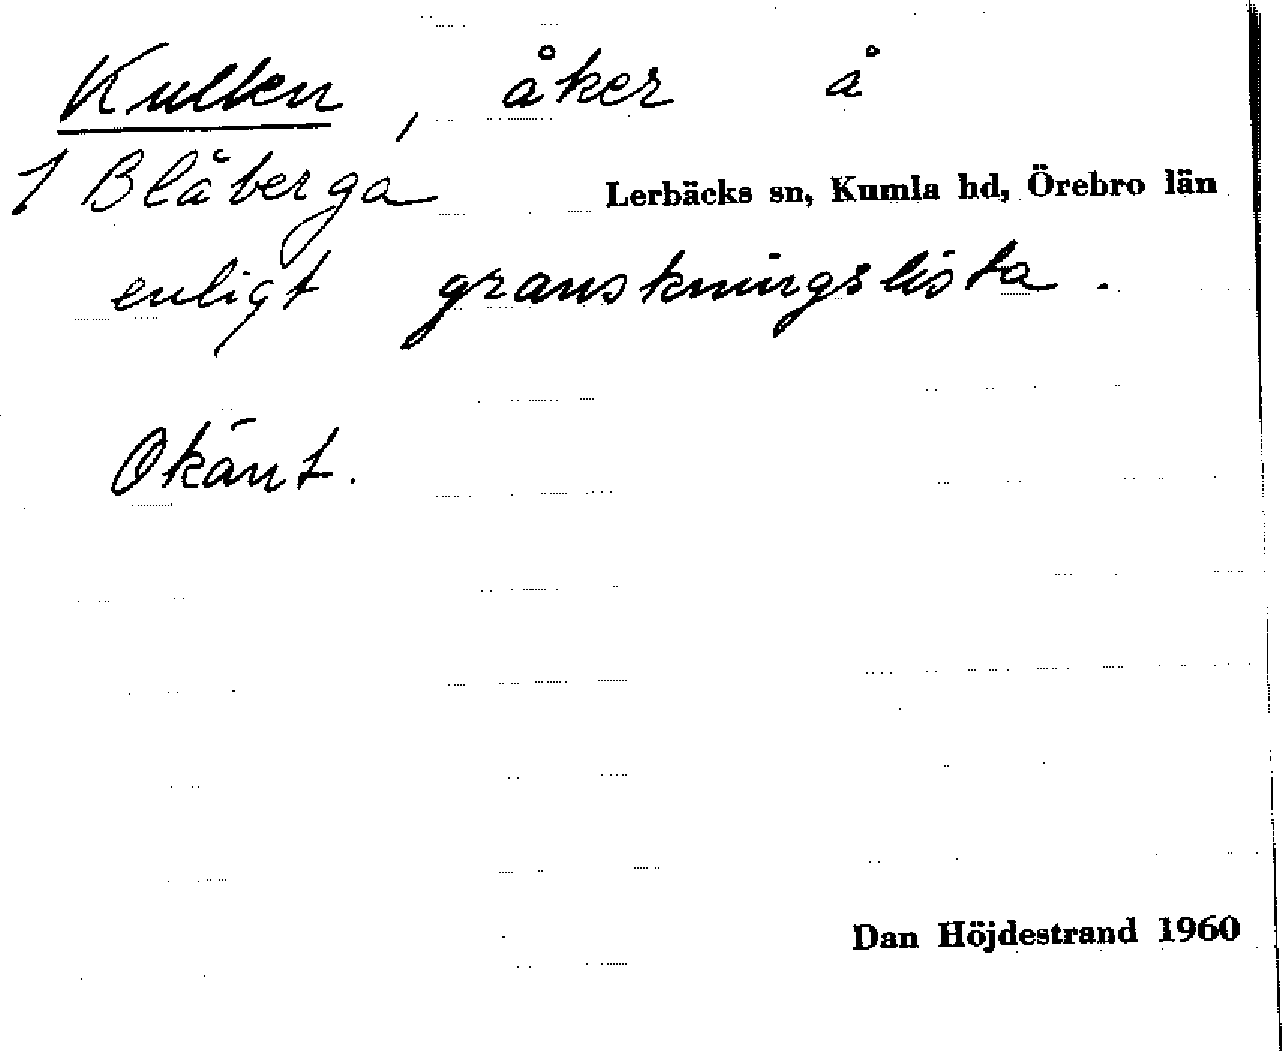 Kullen, åker å
1 Blåberga Lerbäcks sn, Kumla hd, Örebro län
enligt granskningslista.
Okänt.
Dan Höjdestrand 1960